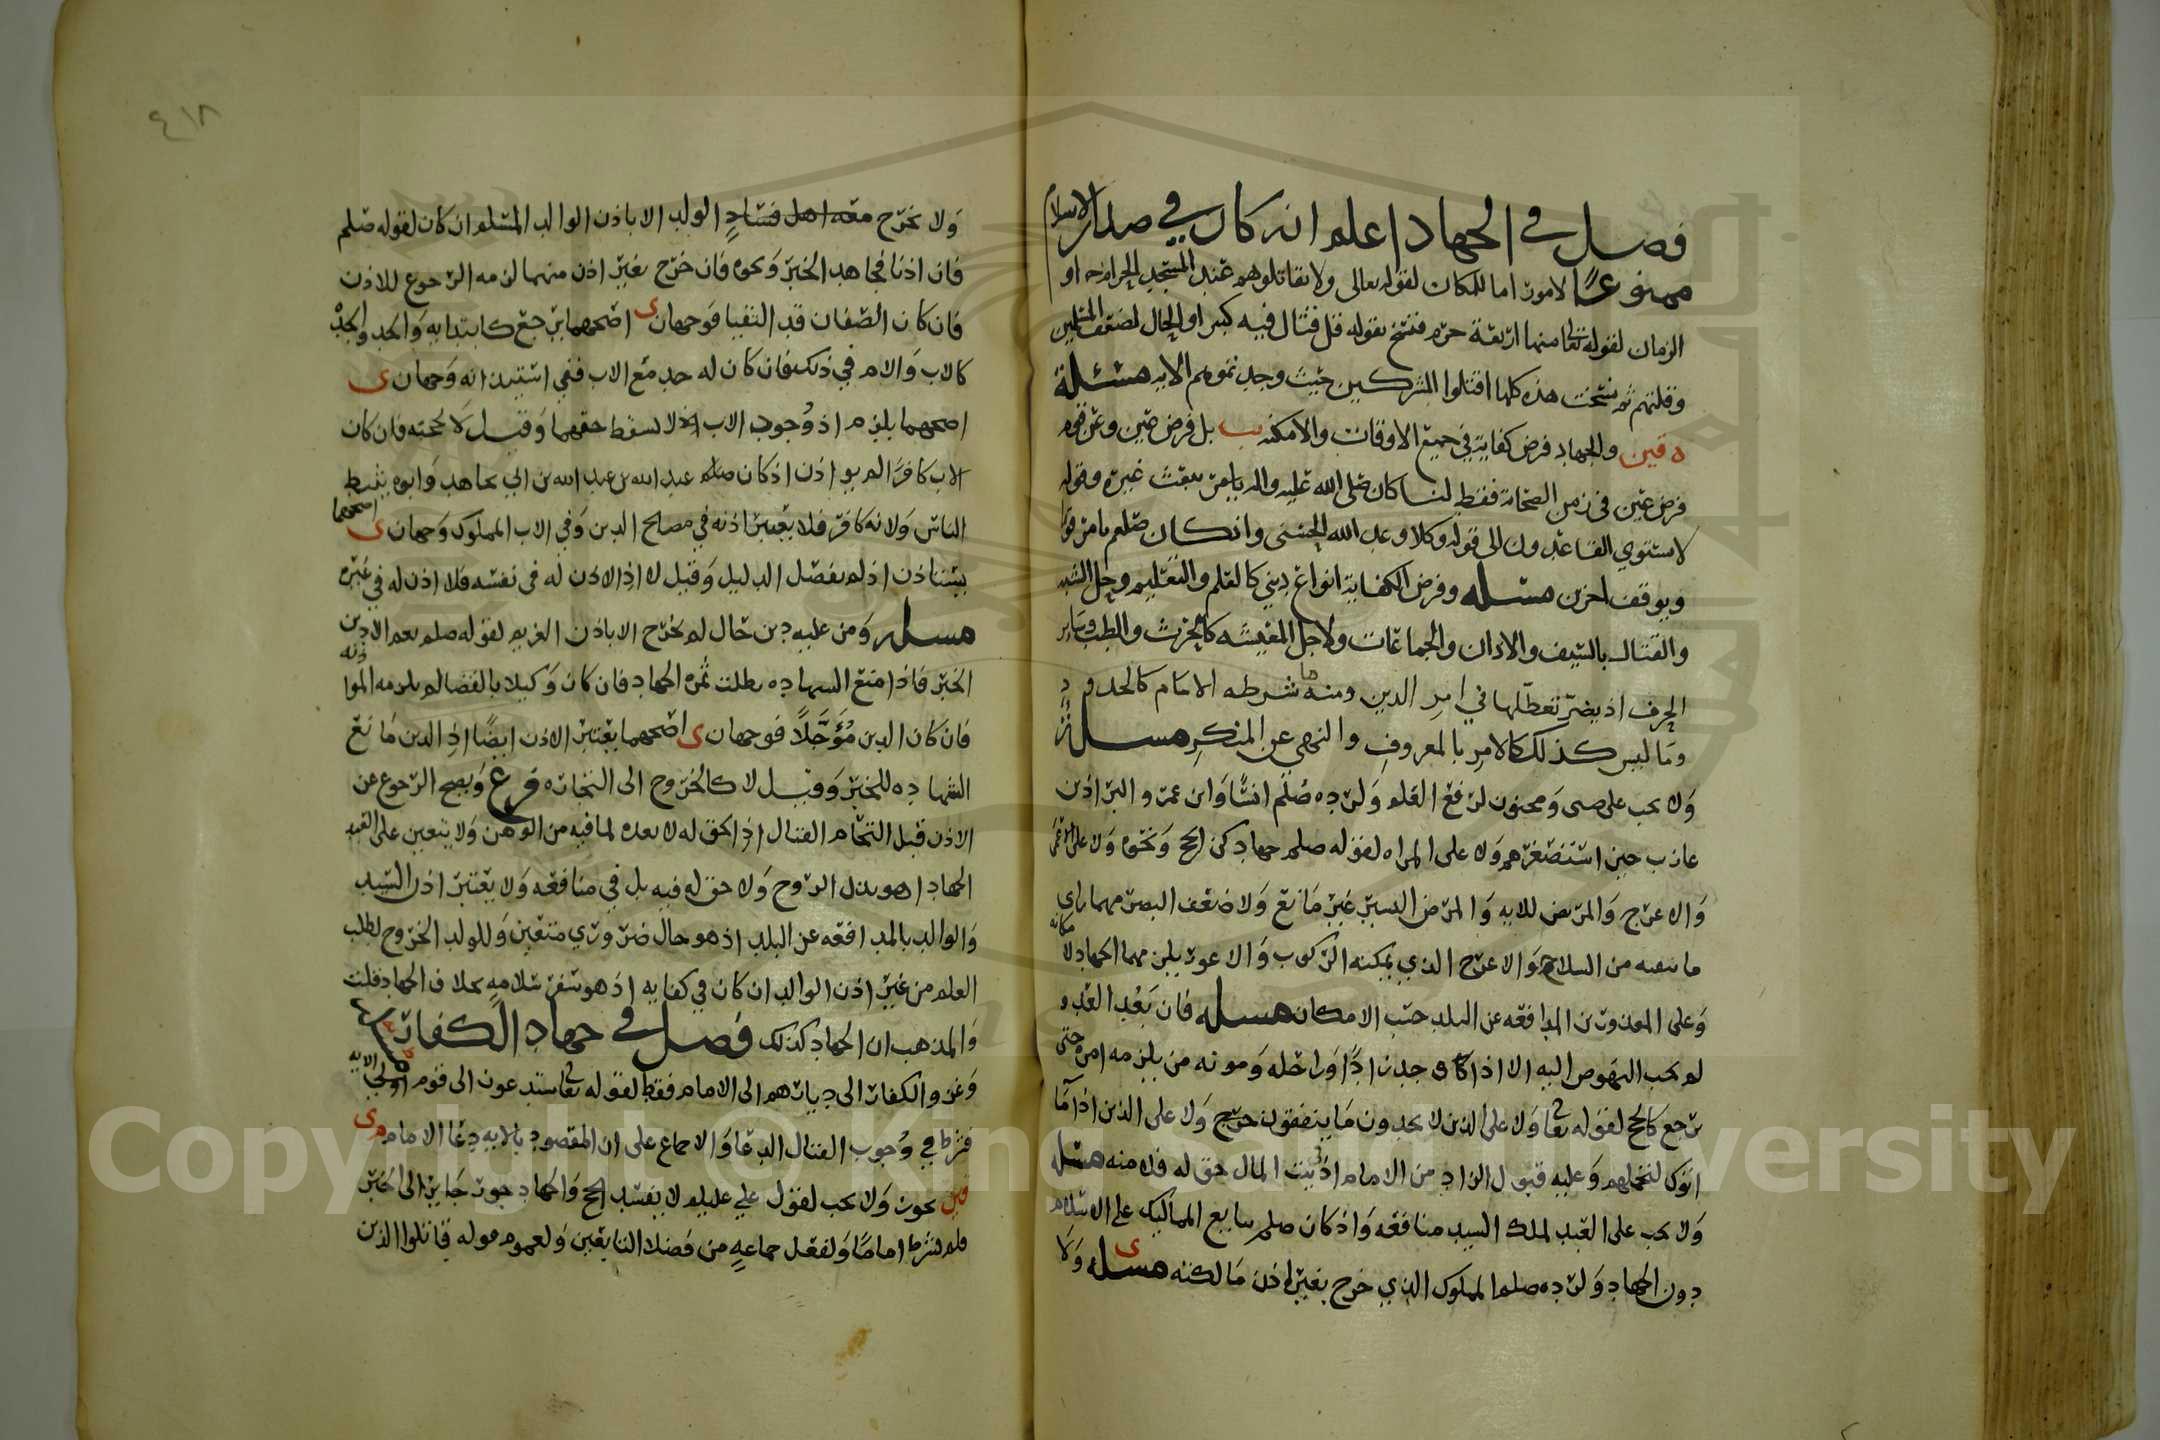 فصل في الجهاد اعلم انه كان في صدر الاسلام
ممنوعًا لامور اما للمكان لقوله تعالى ولا تقاتلوهم عند المسجد الحرام او
الزمان لقوله تعا منها اربعة حرم فنسخ بقوله قل قتال فيه كبير او للحال لضعف المسلمين
وقلتهم ثم نسخت هذه كلها اقتلوا المشركين حيث وجدتموهم الايه مسئلة
ه قين والجهاد فرض كفاية في جميع الاوقات والامكنه يب بل فرض عين وعن قوم
فرض عين في زمن الصحابة فقط لنا كان صلى الله عليه واله يامر ببعث غيره وقوله
لا يستوي القاعدون الى قوله وكلا وعد الله الحسنى وانكان صلعم يامر قوما
ويوقف اخرين مسئله وفرض الكفاية انواع ديني كالعلم والتعليم وحل الشبه
والقتال بالسيف والاذان والجماعات ولاجل المعيشه كالحرث والطب وسائر
الحرف اذ يضر تعطلها في امر الدين ومنه ما شرطه الامام كالحدود
وما ليس كذلك كالامر بالمعروف والنهي عن المنكر مسئله
ولا يجب على صبى ومجنون لرفع القلم ولرده صلعم انسًا وابن عمر والبرا بن
عازب حين استصغرهم ولا على المراه لقوله صلعم جهادكن الحج ونحوه ولا على الاعمى
والاعرج والمريض للايه والمرض اليسير غير مانع ولا ضعف البصر مهما راى
ما يتقيه من السلاح والاعرج الذي يمكنه الركوب والاعور يلزمهما الجهاد لا مكانه
وعلى المعذورين المدافعه عن البلد حسب الامكان مسئله فان بعد العدو
لم يجب النهوض اليه الا اذا كان وجد زادًا وراحله ومونه من يلزمه امره حتى
يرجع كالحج لقوله تعا ولا على الذين لا يجدون ما ينفقون حرج ولا على الذين اذا ما
اتوك لتحملهم وعليه قبول الزاد من الامام اذ بيت المال حق له فلا منه مسئله
ولا يجب على العبد لملك السيد منافعه واذ كان صلعم يبايع المماليك على الاسلام
دون الجهاد ولرده صلعم المملوك الذي خرج بغير اذن مالكته مسئله ى ولا
ولا يخرج معه اهل فساد الولد الا باذن الوالد المسلم ان كان لقوله صلعم
فان اذنا فجاهد الخبر ونحوه فان خرج بغير اذن منهما لزمه الرجوع للاذن
فان كان الصفان قد التقيا فوجهان ى اصحهما يرجع كابتدايه والجد والجده
كالاب والام في ذلك فان كان له جد مع الاب ففي استيذانه وجهان ى
اصحهما يلزم اذ وجود الاب لا يسقط حقهما وقيل لا لحجبه فان كان
الاب كافرًا لم يواذن اذ كان عبد الله بن عبد الله بن ابي يجاهد وابوه يثبط
الناس ولانه كافر فلا يعتبر اذنه في مصالح الدين وفي الاب المملوك وجهان ى اصحهما
يستاذن اذ لم يفصل الدليل وقيل لا اذ لا اذن له في نفسه فلا اذن له في غيره
مسئله ومن عليه دين حال لم يخرج الا باذن الغريم لقوله صلعم نعم الا الدين
الخبر فاذا منع الشهاده بطلت ثمره الجهاد فان كان وكيلا بالقضا لم يلزمه المواذنه
فان كان الدين مؤجلًا فوجهان ى اصحهما يعتبر الاذن ايضًا اذ الدين مانع
الشهاده للخبر وقيل لا كالخروج الى التجاره فرع ويصح الرجوع عن
الاذن قبل التحام القتال اذ الحق له لا بعده لما فيه من الوهن ولا يتعين على العبد
الجهاد اذ هو بذل الروح ولا حق له فيه بل في منافعه ولا يعتبر اذن السيد
والوالد بالمدافعه عن البلد اذ هو حال ضروري متعين وللولد الخروج لطلب
العلم من غير اذن الوالد ان كان في كفايه اذ هو سفر سلامه بخلاف الجهاد قلت
والمذهب ان الجهاد كذلك فصل في جهاد الكفار
وغزو الكفار الى ديارهم الى الامام فقط لقوله تعا ستدعون الى قوم اولي الايه
فشرط في وجوب القتال الدعا والاجماع على ان المقصود بالايه دعا الامام م ى
قين يجوز ولا يجب لقول علي عليلم لا يفسد الحج والجهاد جور جاير الخبر
فلم يشترط امامًا ولفعل جماعه من فضلا التابعين ولعموم قوله قاتلوا الذين